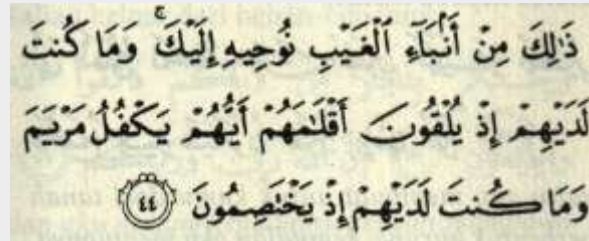 ذَٰلِكَ مِنْ أَنۢبَآءِ ٱلْغَيْبِ نُوحِيهِ إِلَيْكَ ۚ وَمَا كُنتَ
لَدَيْهِمْ إِذْ يُلْقُونَ أَقْلَٰمَهُمْ أَيُّهُمْ يَكْفُلُ مَرْيَمَ
وَمَا كُنتَ لَدَيْهِمْ إِذْ يَخْتَصِمُونَ ﴿٤٤﴾